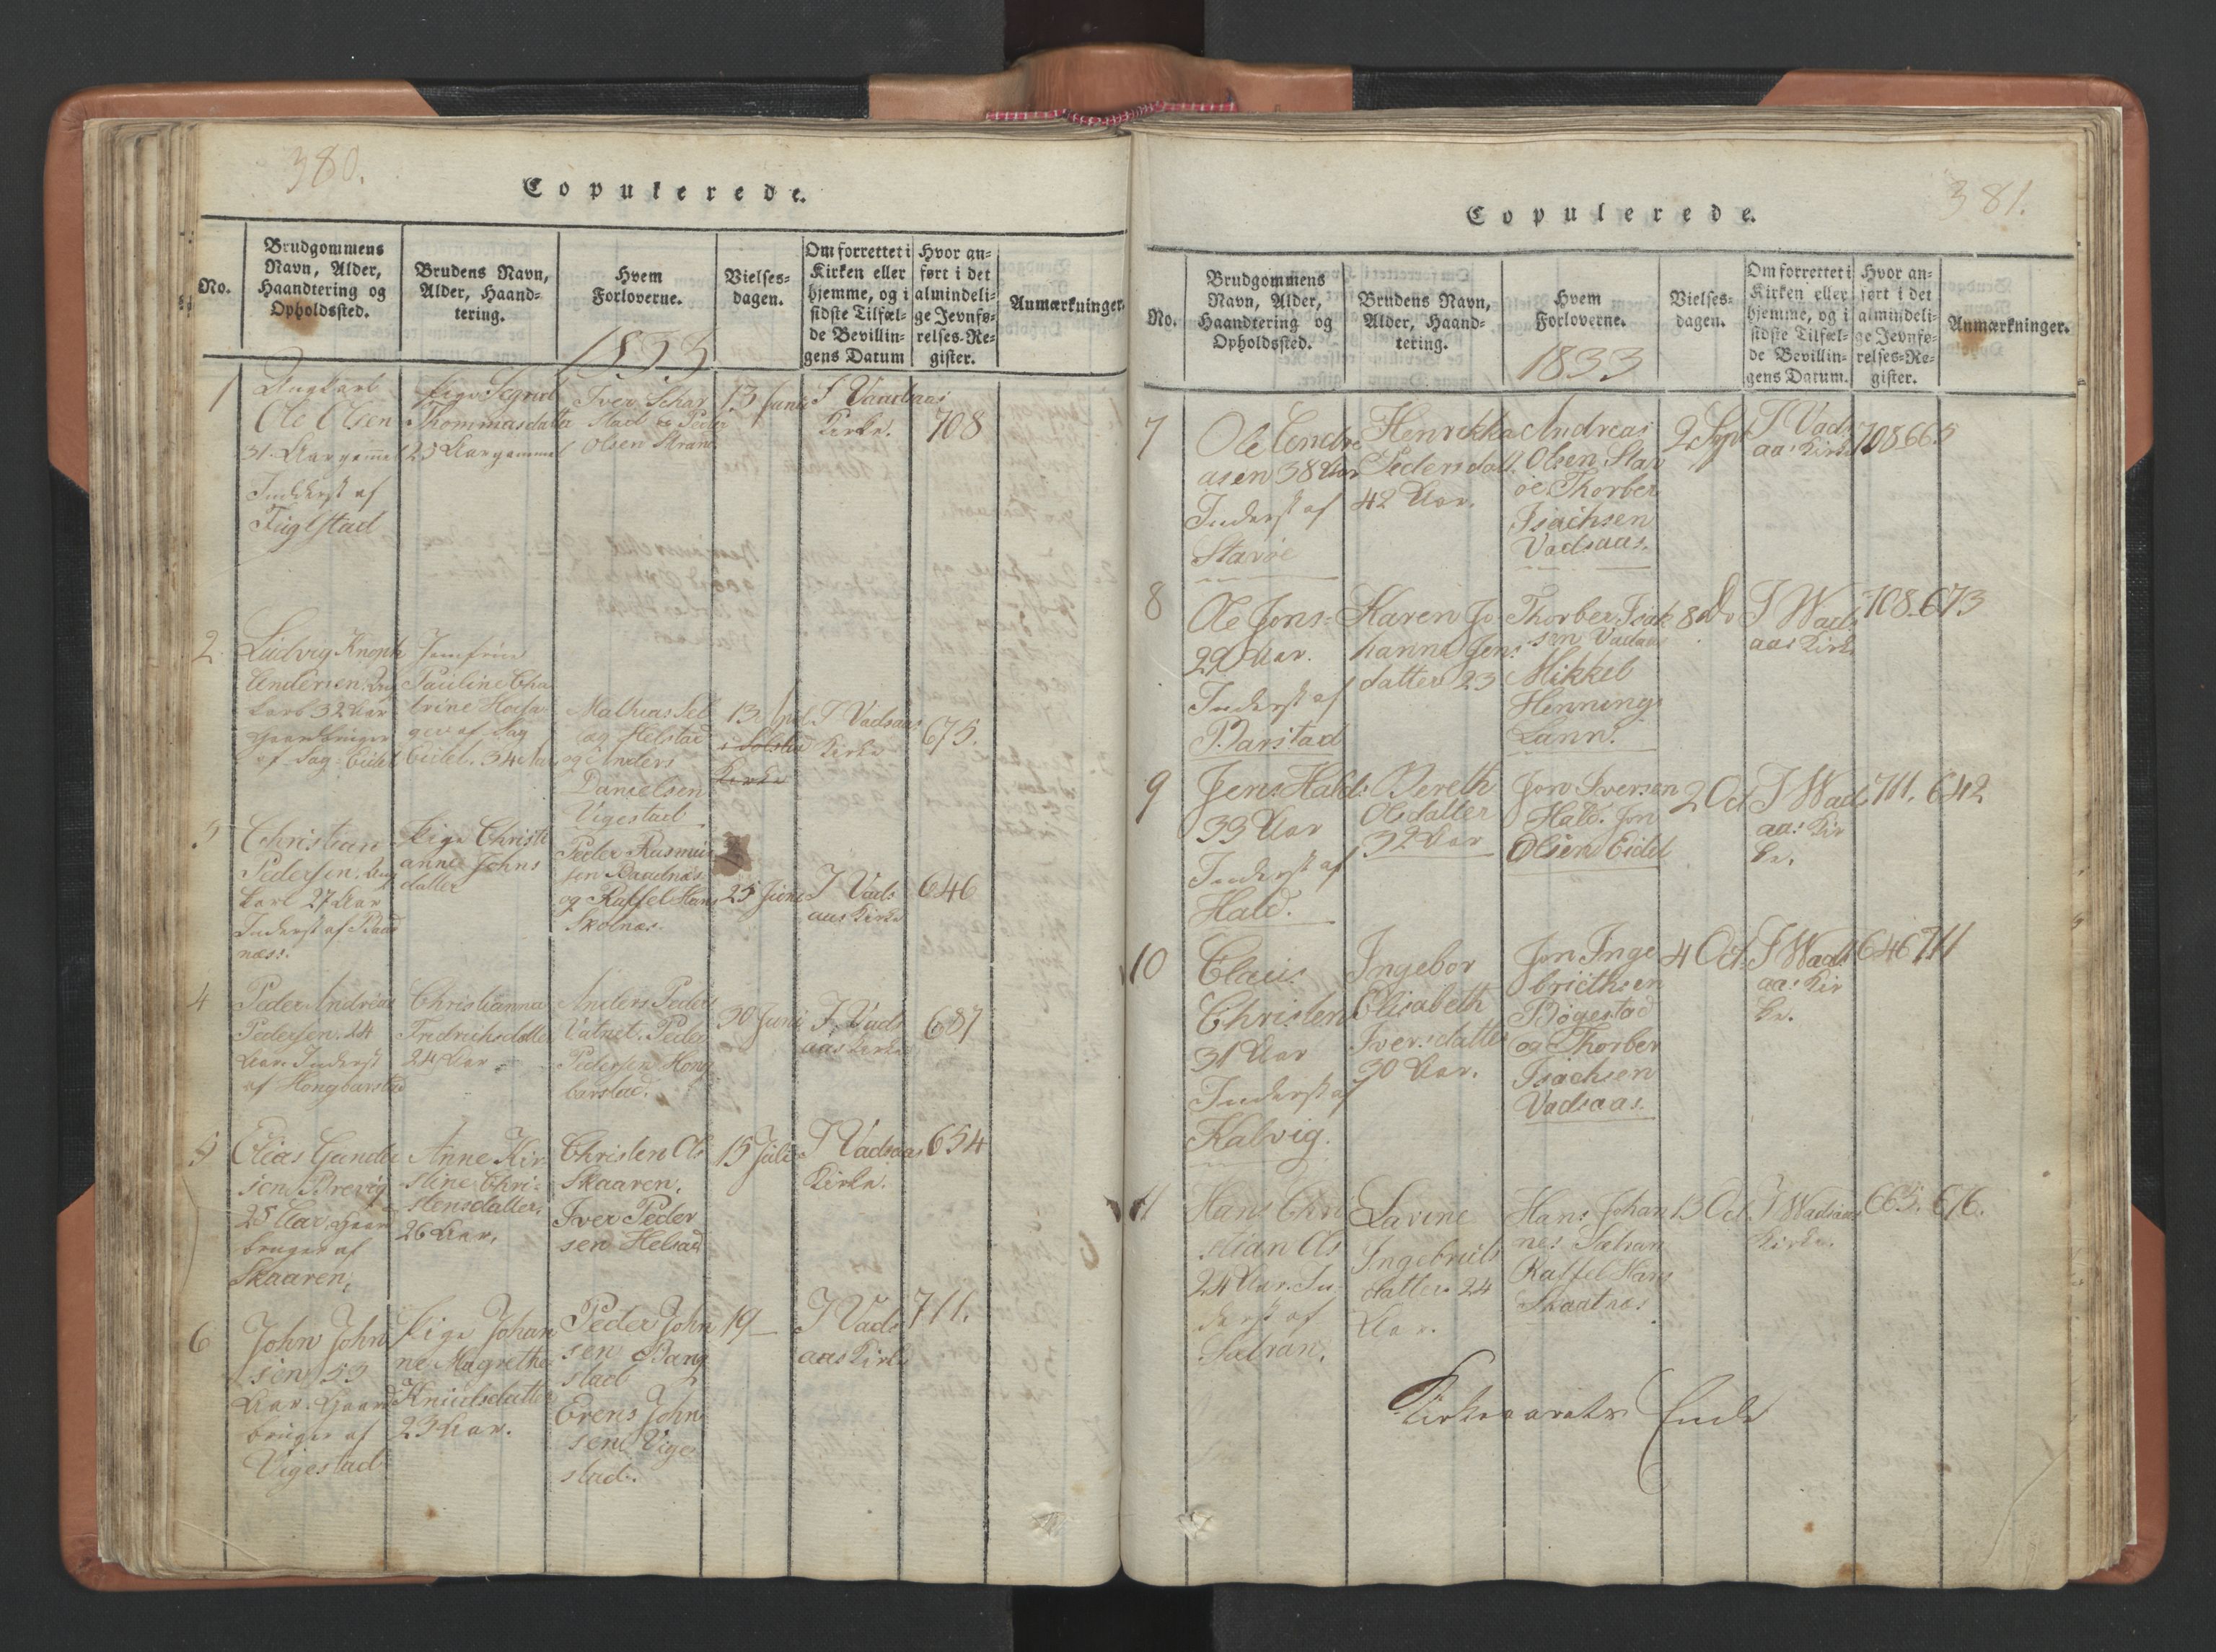 380.
Copulerede.
No.
Brudgommens
Navn, Alder,
Haandtering og
Opholdssted.
Brudens Navn,
Alder, Haand-
tering.
Hvem
Forloverne.
1833
Vielses-
dagen.
Om forrettet i
Kirken eller
hjemme, og i
sidste Tilfæl-
de Bevillin-
gens Datum
Hvor an-
ført i det
almindeli-
ge Jevnfø-
relses-Re-
gister.
Anmærkninger.
1
Ungkarl
Ole Olsen
31 Aar gammel
Inderst af
Fuglstad
Pige Sigrid
Thommasdatter
23 Aar gammel
Iver Schar
stad og Peder
Olsen Strand
13 Juni
I Vandsaas
Kirke.
708
2
Ludvig Knoph
Andersen. Ung
karl 32 Aar
Gaardbruger
af Sag-Eidet
Jomfrue
Pauline Cha
trine
af Sag
Eidet. 34 Aar
Mathias
og Helstad
og Anders
Danielsen
Vigestad
13
Kirke
I Vadsaas
Kirke
675.
3
Christian
Pedersen. Ung
karl 27 Aar
Inderst af Baad
næs.
Pige Christi
anna Johns
datter
Peder Rasmus
sen Baadnæs
og Raffel Hans
Skolnæs.
25 Juni
I Vads
aas Kirke
646
4
Peder Andreas
Pedersen. 24
Aar. Inderst
af Hongbarstad
Christianna
Fredrichsdatter
24 Aar
Anders Peders
Vatnet. Peder
Pedersen Hong
barstad.
30 Juni
I Vads
aas Kirke
687
5
Elias Gunder
sen Brevig
25 Aar. Gaard
bruger af
Skaaren,
Anne Kir
stine Chri-
stensdatter,
26 Aar,
Christen Ols
Skaaren.
Iver Peder
sen Helstad
15 Juli
I Vadsaas
Kirke.
654
6
John John
sen 53
Aar. Gaard
bruger af
Vigestad
Pige Johan
ne Magrethe
Knudsdatter
23 Aar.
Peder John
sen Bang
stad
Erens John
sen Vige
stad.
19
I Vads
aas Kirke
711.
381.
Copulerede.
No.
Brudgommens
Navn, Alder,
Haandtering og
Opholdssted.
Brudens Navn,
Alder, Haand-
tering.
Hvem
Forloverne.
1833
Vielses-
dagen.
Om forrettet i
Kirken eller
hjemme, og i
sidste Tilfæl-
de Bevillin-
gens Datum.
Hvor an-
ført i det
almindeli-
ge Jevnfø-
relses-Re-
gister.
Anmærkninger.
7
Ole Endre
asen 38 Aar
Inderst af
Starøe
Henrikka
Pedersdatt.
42 Aar.
Andreas
Olsen Star
øe. Thorber
Isachsen
Vadsaas.
2 Sept
I Vads
aas Kirke
708 665
8
Ole Jons-
29 Aar.
Inderst af
Barstad
Karen Jo
hanna Jens
datter 23
Thorber Isak
sen Vadsaas
Mikkel
Hennings
Lann.
8 do
I Wads
aas Kirke
708. 673
9
Jens Hald:
33 Aar
Inderst af
Hald.
Bereth
Olsdatter
32 Aar
Jon Iversen
Hald. Jon
Olsen Eidet
2 Oct
I Wads
aas Kir
ke.
711. 642
10
Claus
Christens
31 Aar
Inderst af
Kalvig.
Ingebor
Elisabeth
Iversdatter
30 Aar.
Jon Inge
brigthsen
Bøgestad
og Thorber
Isachsen
Vadsaas.
4 Oct.
I Wads
aas Kir
ke.
646 711
11
Hans Chri
stian Ols
24 Aar. In
derst af
Satran.
Lavine
Ingebrits
datter 24
Aar.
Hans Johan
nes Satran
Raffel Hans
Skaatnæs
13 Oct.
I Wadsaas
Kirke.
663. 676.
Kirkeaarets Ende